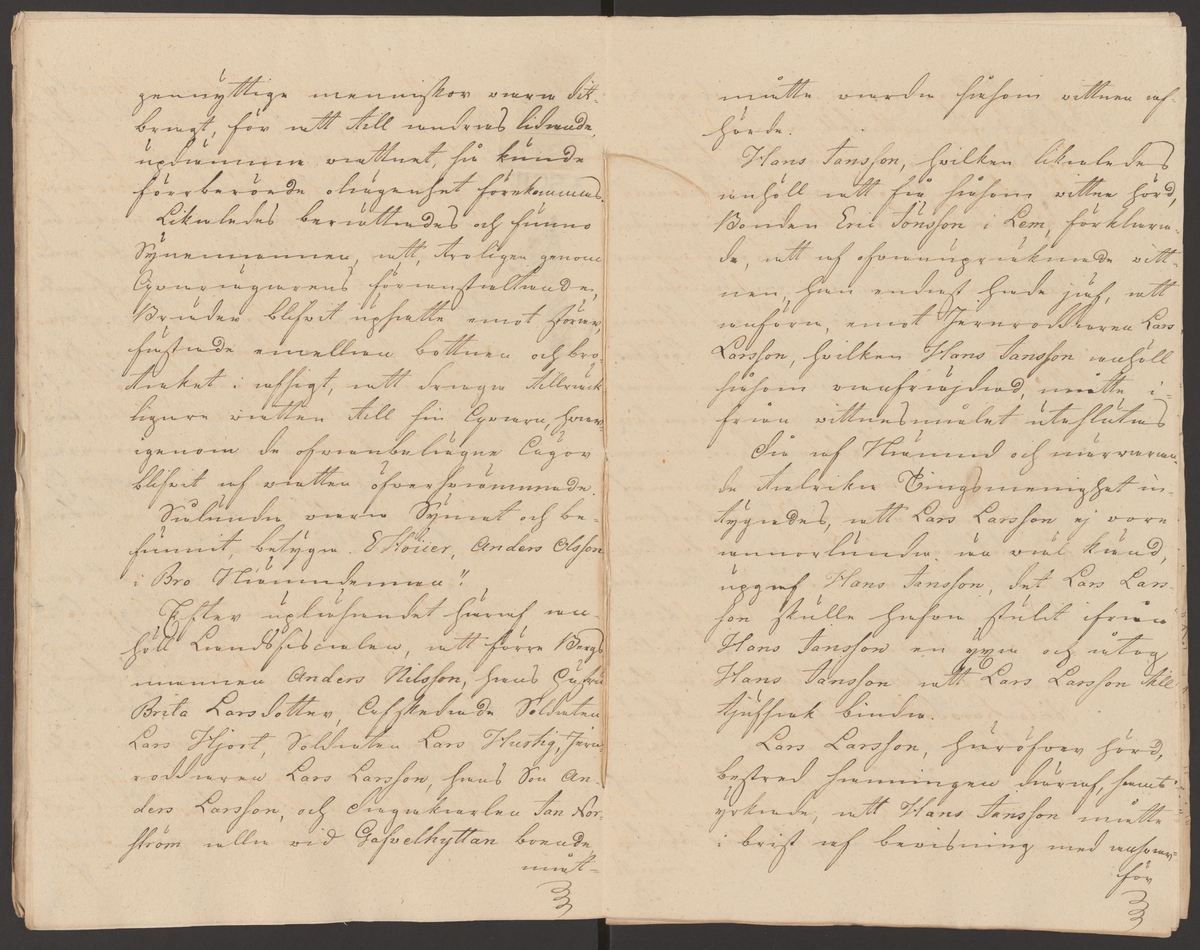 gennyttige menniskor vara dit-
bragt, för att till andras lidande
updämma vattnet, så kunde
förrberörde olägenhet förekommas.
Likaledes berättades och funno
Synemännen, att, troligen genom
Qvarnägarens föranstaltande,
Bräder blifvit upsatte emot sörar,
fästade emellan bottnen och bro-
taket i afsigt, att draga tillräck-
ligare vatten till sin Qvarn, hvar-
igenom de ofvanbelägne Lägor
blifvit af vatten öfversvämmade.
Sålunda vara Synat och be-
funnit, betyga. E Höijer, Anders Olsson
i Bro Nämndeman"
Efter upläsandet häraf an-
höll Landsfiscalen, att förre Bergs
mannen Anders Nilsson, hans hustru
Brita Larsdotter, Afskedade Soldaten
Lars Hjort, Soldaten Lars Hurtig, Jern
roddaren Lars Larsson, hans Son An-
ders Larsson, och Drängkarlen Jan Nor-
ström alla vid Gafvelhyttan boende,
måt-
måtte varda såsom vittnen af-
hörde.
Hans Jansson, hvilken likaledes
anhöll att få såsom vittne hörd,
Bonden Eric Jönsson i Lem, förklara-
de, att af ofvanuppräknade vitt-
nen, han endast hade jäf, att
anföra, emot Jernroddaren Lars
Larsson, hvilken Hans Jansson anhöll
såsom vanfräjdad, måtte i-
från vittnesmålet uteslutas
Då af Nämnd och närvaran-
de talrika Tingsmenighet in-
tygades, att Lars Larsson ej vore
annorlunda än väl känd,
upgaf Hans Jansson, det Lars Lars-
son skulle hafva stulit ifrån
Hans Jansson en yxa och åtog
Hans Jansson att Lars Larsson till
tjufsak binda.
Lars Larsson, häröfver hörd,
bestred sanningen däraf, samt
yrkade, att Hans Jansson måtte
i brist af bevisning med ansvar
för